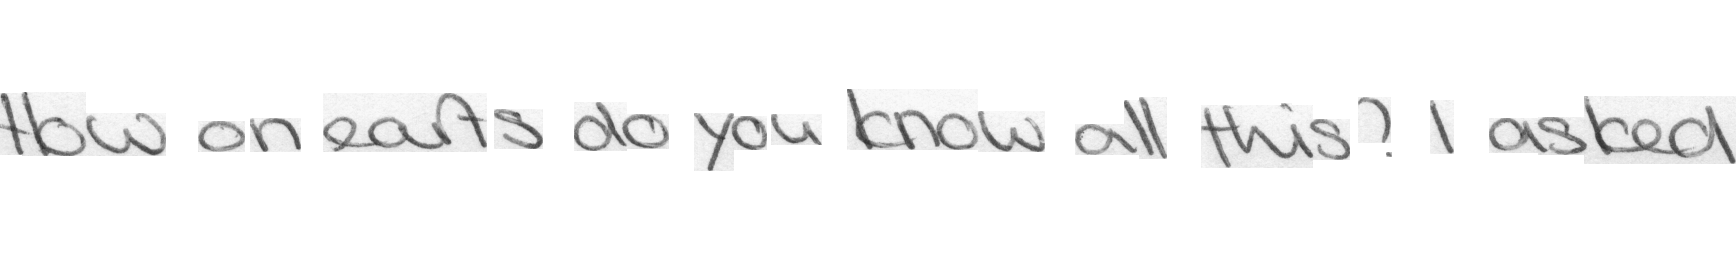 How on earts do you know all this? I asked